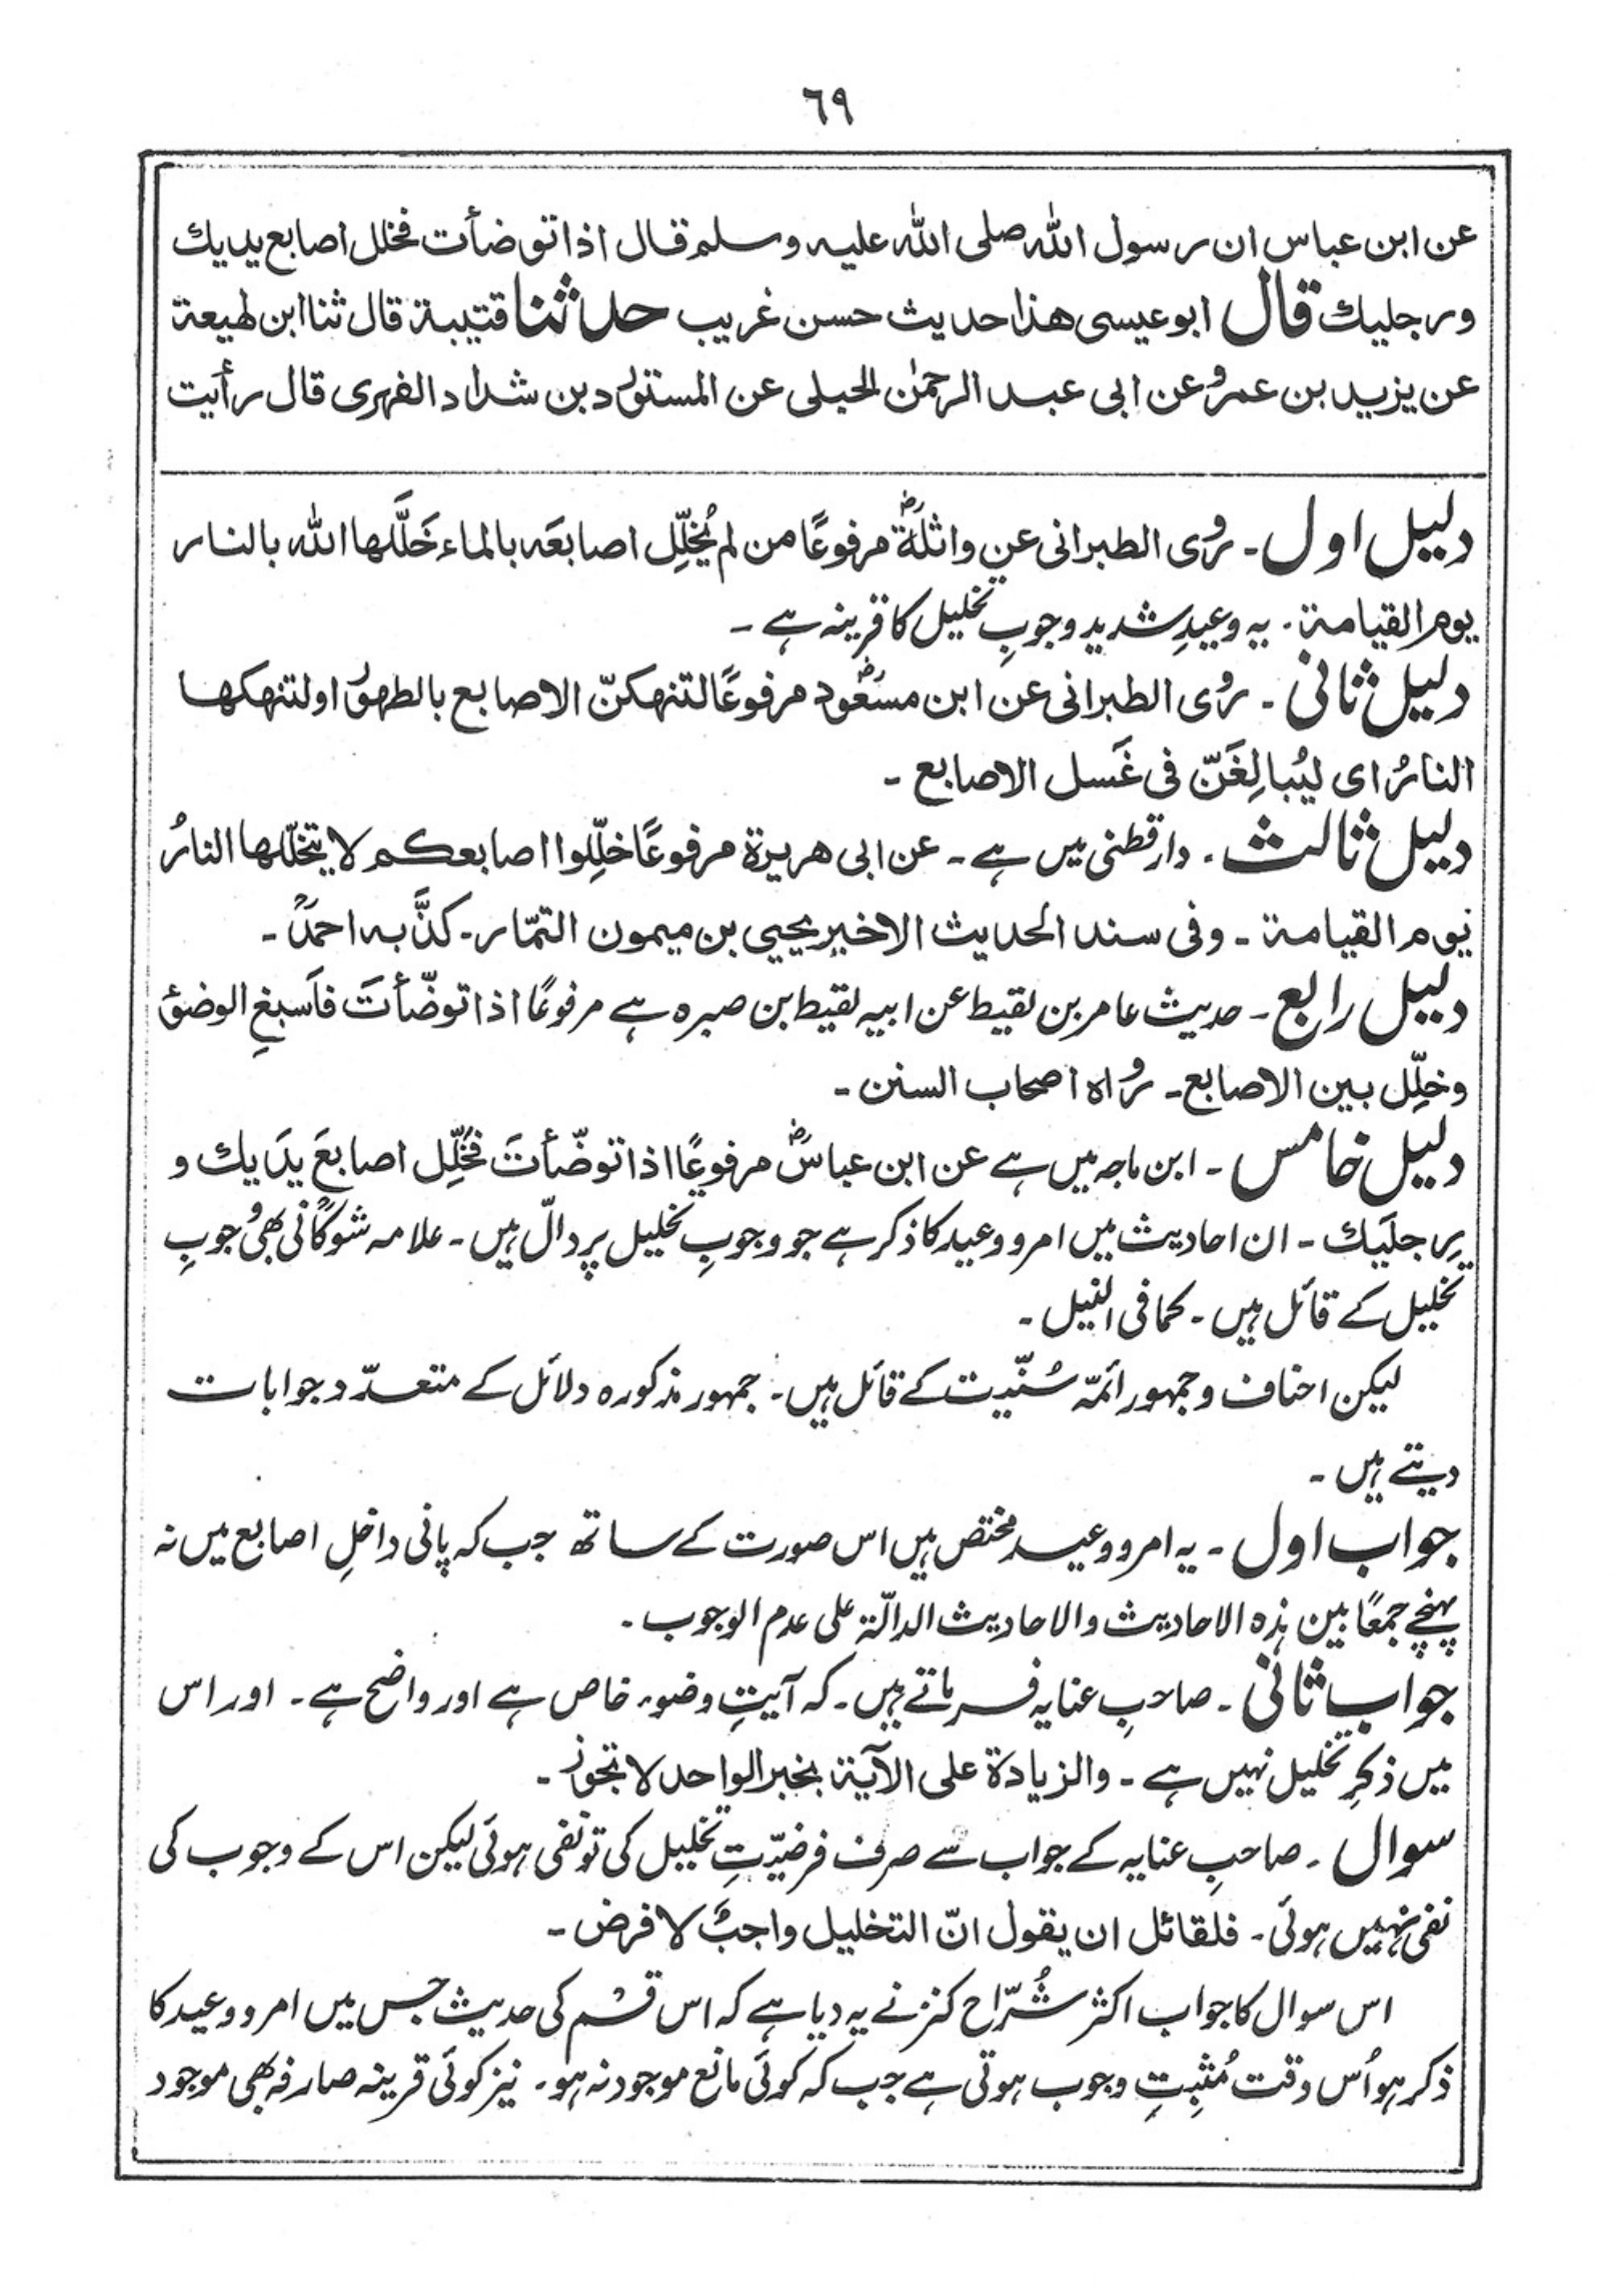 ٦٩
عن ابن عباس ان رسول الله صلى الله عليه وسلم قال اذا توضأت فخلل اصابع يديك
ورجليك قال ابو عيسى هذا حديث حسن غريب حدثنا قتيبة قال ثنا ابن لهيعة
عن يزيد بن عمرو عن ابى عبد الرحمٰن الحبلى عن المستورد بن شداد الفهرى قال رأيت
دلیل اول ۔ روى الطبرانى عن واثلةؓ مرفوعًا من لم يُخلِّل اصابعَه بالماء خَلَّلها الله بالنار
يوم القيامة ۔ یہ وعیدِ شدید وجوبِ تخلیل کا قرینہ ہے ۔
دلیل ثانی ۔ روى الطبرانى عن ابن مسعودؓ مرفوعًا لتنهكنّ الاصابع بالطهور او لتنهكها
النارُ اى ليُبالِغَنّ فى غَسل الاصابع ۔
دلیل ثالث ۔ دارقطنی میں ہے ۔ عن ابى هريرة مرفوعًا خلِّلوا اصابعكم لا يتخلّلها النارُ
يوم القيامة ۔ وفى سند الحديث الاخير يحيى بن ميمون التمّار ۔ كذَّبه احمدؒ ۔
دلیل رابع ۔ حدیث عامر بن لقیط عن ابیہ لقیط ابن صبرہ ہے مرفوعًا اذا توضّأتَ فاَسبغِ الوضوءَ
وخلِّل بين الاصابع ۔ رواه اصحاب السنن ۔
دلیل خامس ۔ ابن ماجہ میں ہے عن ابن عباسؓ مرفوعًا اذا توضّأتَ فخَلِّل اصابعَ يدَيك و
رِجلَيك ۔ ان احادیث میں امر و وعید کا ذکر ہے جو وجوبِ تخلیل پر دالّ ہیں ۔ علامہ شوکانیؒ بھی وجوبِ
تخلیل کے قائل ہیں ۔ کما فی النیل ۔
لیکن احناف و جمہور ائمّہ سُنّیت کے قائل ہیں ۔ جمہور مذکورہ دلائل کے متعدّد جوابات
دیتے ہیں ۔
جواب اول ۔ یہ امر و وعید مختص ہیں اس صورت کے ساتھ جب کہ پانی داخلِ اصابع میں نہ
پہنچے جمعًا بین ہذہ الاحادیث والاحادیث الدالّۃ علی عدم الوجوب ۔
جواب ثانی ۔ صاحبِ عنایہ فرماتے ہیں ۔ کہ آیتِ وضوء خاص ہے اور واضح ہے ۔ اور اس
میں ذکرِ تخلیل نہیں ہے ۔ والزيادة على الآية بخبر الواحد لا تجوز ۔
سوال ۔ صاحبِ عنایہ کے جواب سے صرف فرضیّتِ تخلیل کی تو نفی ہوئی لیکن اس کے وجوب کی
نفی نہیں ہوئی ۔ فلقائل ان يقول انّ التخليل واجبٌ لا فرض ۔
اس سوال کا جواب اکثر شُرّاح کنز نے یہ دیا ہے کہ اس قسم کی حدیث جس میں امر و وعید کا
ذکر ہو اُس وقت مُثبِتِ وجوب ہوتی ہے جب کہ کوئی مانع موجود نہ ہو ۔ نیز کوئی قرینہ صارفہ بھی موجود